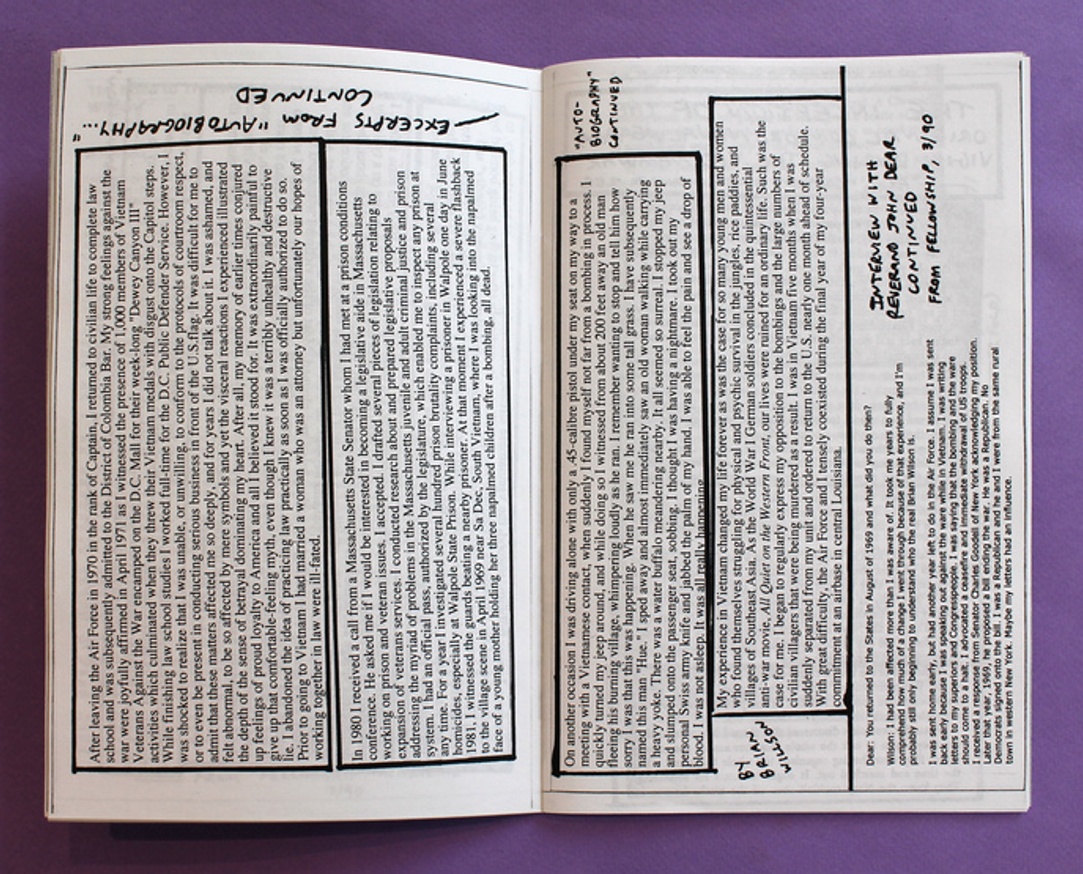 EXCERPTS FROM "AUTOBIOGRAPHY..."
CONTINUED
After leaving the Air Force in 1970 in the rank of Captain, I returned to civilian life to complete law
school and was subsequently admitted to the District of Colombia Bar. My strong feelings against the
war were joyfully affirmed in April 1971 as I witnessed the presence of 1,000 members of Vietnam
Veterans Against the War encamped on the D.C. Mall for their week-long "Dewey Canyon III"
activities which culminated when they threw their Vietnam medals with disgust onto the Capitol steps.
While finishing law school studies I worked full-time for the D.C. Public Defender Service. However, I
was shocked to realize that I was unable, or unwilling, to conform to the protocols of courtroom respect,
or to even be present in conducting serious business in front of the U.S.flag. It was difficult for me to
admit that these matters affected me so deeply, and for years I did not talk about it. I was ashamed, and
felt abnormal, to be so affected by mere symbols and yet the visceral reactions I experienced illustrated
the depth of the sense of betrayal dominating my heart. After all, my memory of earlier times conjured
up feelings of proud loyalty to America and all I believed it stood for. It was extraordinarily painful to
give up that comfortable-feeling myth, even though I knew it was a terribly unhealthy and destructive
lie. I abandoned the idea of practicing law practically as soon as I was officially authorized to do so.
Prior to going to Vietnam I had married a woman who was an attorney but unfortunately our hopes of
working together in law were ill-fated.
In 1980 I received a call from a Massachusetts State Senator whom I had met at a prison conditions
conference. He asked me if I would be interested in becoming a legislative aide in Massachusetts
working on prison and veteran issues. I accepted. I drafted several pieces of legislation relating to
expansion of veterans services. I conducted research about and prepared legislative proposals
addressing the myriad of problems in the Massachusetts juvenile and adult criminal justice and prison
system. I had an official pass, authorized by the legislature, which enabled me to inspect any prison at
any time. For a year I investigated several hundred prison brutality complaints, including several
homicides, especially at Walpole State Prison. While interviewing a prisoner in Walpole one day in June
1981, I witnessed the guards beating a nearby prisoner. At that moment I experienced a severe flashback
to the village scene in April 1969 near Sa Dec, South Vietnam, where I was looking into the napalmed
face of a young mother holding her three napalmed children after a bombing, all dead.
"AUTO-
BIOGRAPHY"
CONTINUED
On another occasion I was driving alone with only a 45-calibre pistol under my seat on my way to a
meeting with a Vietnamese contact, when suddenly I found myself not far from a bombing in process. I
quickly turned my jeep around, and while doing so I witnessed from about 200 feet away an old man
fleeing his burning village, whimpering loudly as he ran. I remember wanting to stop and tell him how
sorry I was that this was happening. When he saw me he ran into some tall grass. I have subsequently
named this man "Hue." I sped away and almost immediately saw an old woman walking while carrying
a heavy yoke. There was a water buffalo meandering nearby. It all seemed so surreal. I stopped my jeep
and slumped onto the passenger seat, sobbing. I thought I was having a nightmare. I took out my
personal Swiss army knife and jabbed the palm of my hand. I was able to feel the pain and see a drop of
blood. I was not asleep. It was all really happening
BY
BRIAN
WILLSON
My experience in Vietnam changed my life forever as was the case for so many young men and women
who found themselves struggling for physical and psychic survival in the jungles, rice paddies, and
villages of Southeast Asia. As the World War I German soldiers concluded in the quintessential
anti-war movie, All Quiet on the Western Front, our lives were ruined for an ordinary life. Such was the
case for me. I began to regularly express my opposition to the bombings and the large numbers of
civilian villagers that were being murdered as a result. I was in Vietnam five months when I was
suddenly separated from my unit and ordered to return to the U.S. nearly one month ahead of schedule.
With great difficulty, the Air Force and I tensely coexisted during the final year of my four-year
commitment at an airbase in central Louisiana.
INTERVIEW WITH
REVERAND JOHN DEAR
CONTINUED
FROM FELLOWSHIP, 3/90
Dear: You returned to the States in August of 1969 and what did you do then?
Wilson: I had been affected more than I was aware of. It took me years to fully
comprehend how much of a change I went through because of that experience, and I'm
probably still only beginning to understand who the real Brian Wilson is.
I was sent home early, but had another year left to do in the Air Force. I assume I was sent
back early because I was speaking out against the war while in Vietnam. I was writing
letters to my superiors and Congresspeople. I was saying that the bombing and the ware
should come to a halt. I advocated a ceasefire and immediate withdrawal of US troops.
I received a response from Senator Charles Goodell of New York acknowledging my position.
Later that year, 1969, he proposed a bill ending the war. He was a Republican. No
Democrats signed onto the bill. I was a Republican and he and I were from the same rural
town in western New York. Maybe my letters had an influence.